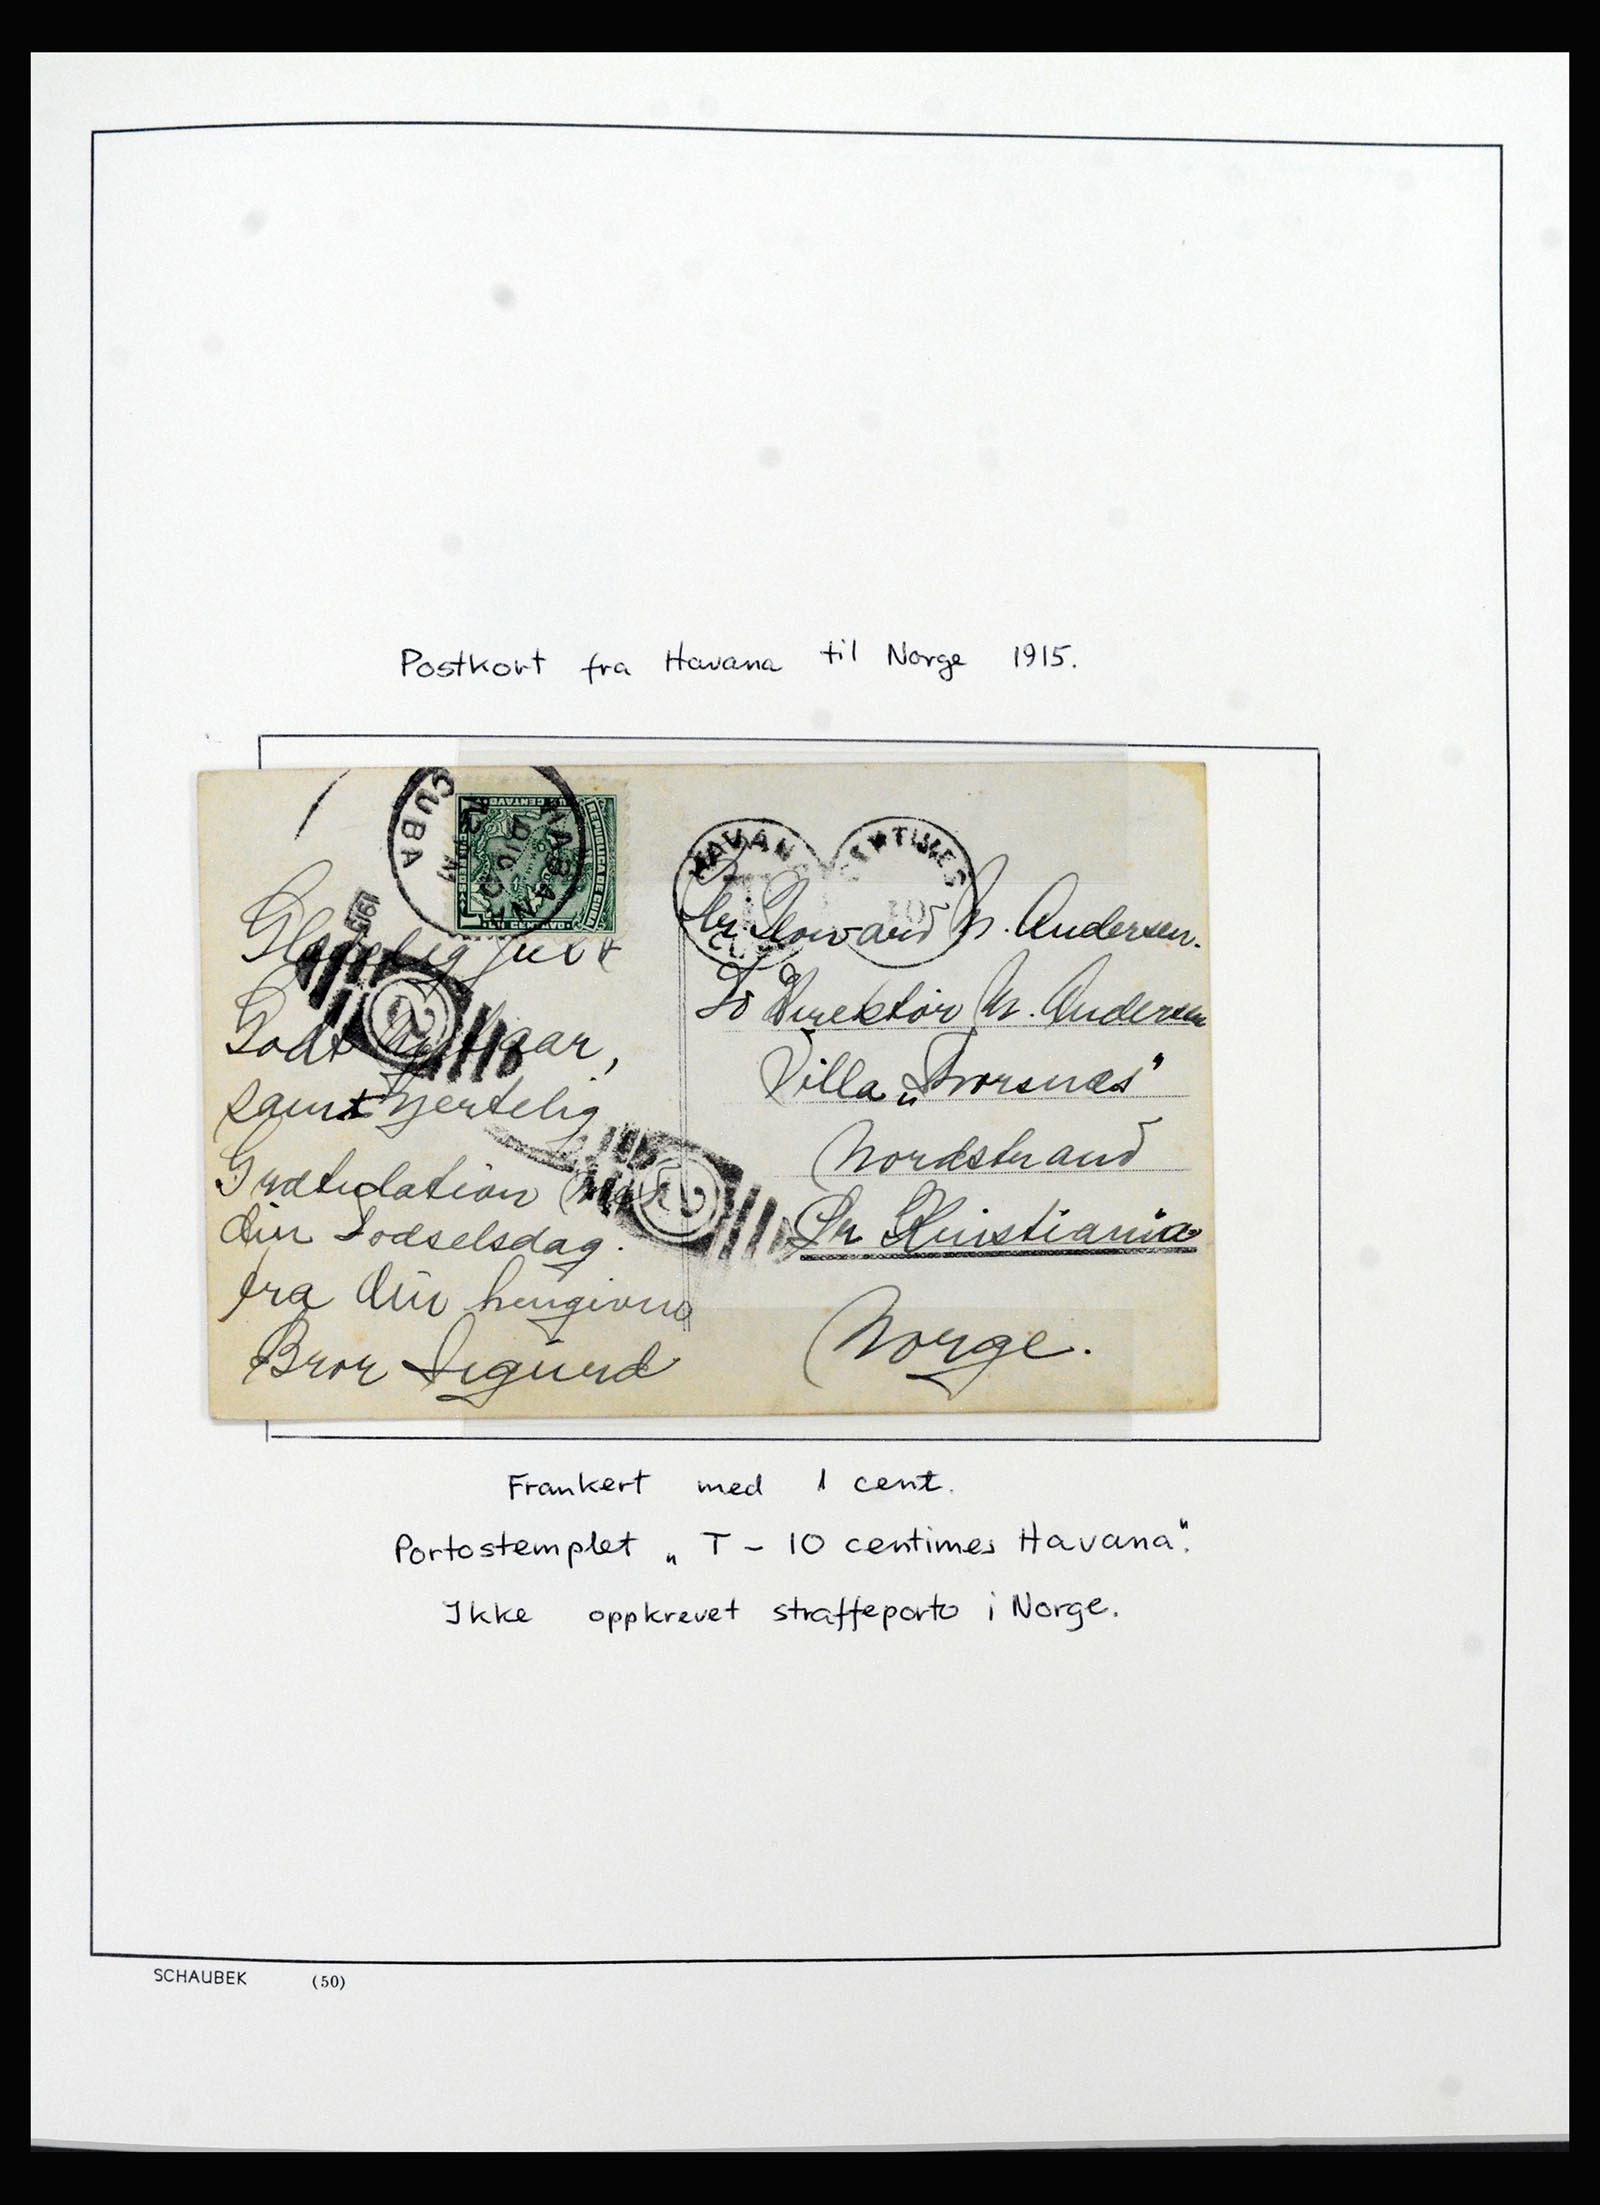 Postkort fra Havana til Norge 1915.
HABANA
CUBA
DIC
1915
REPUBLICA DE CUBA
1
2
2
HAVANA
CENTIMES
10
Glædelig Jul &
Godt Nytaar,
samt hjertelig
Gratulation
din Fødselsdag.
fra din hengivne
Bror Sigurd
N. Andersen.
Direktör N. Andersen
Villa „Thorsnæs"
Nordstrand
Pr Kristiania
Norge.
Frankert med 1 cent.
Portostemplet „T - 10 centimes Havana".
Ikke oppkrevet straffeporto i Norge.
SCHAUBEK (50)